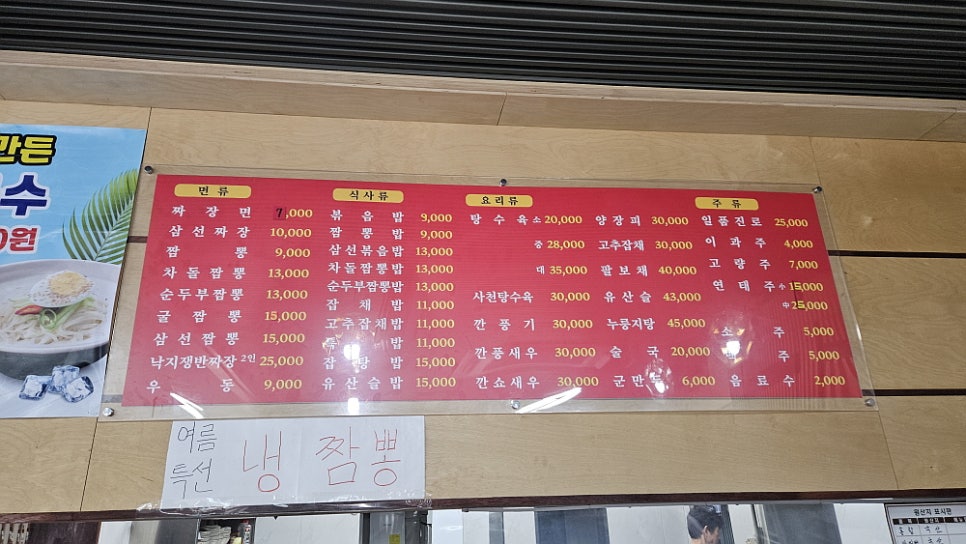 만든
수
0원
면류
짜장면 7,000
삼선짜장 10,000
짬뽕 9,000
차돌짬뽕 13,000
순두부짬뽕 13,000
굴짬뽕 15,000
삼선짬뽕 15,000
낙지쟁반짜장 2인 25,000
우동 9,000
식사류
볶음밥 9,000
짬뽕밥 9,000
삼선볶음밥 13,000
차돌짬뽕밥 13,000
순두부짬뽕밥 13,000
잡채밥 11,000
고추잡채밥 11,000
밥 11,000
잡탕밥 15,000
유산슬밥 15,000
요리류
탕수육 소 20,000
중 28,000
대 35,000
사천탕수육 30,000
깐풍기 30,000
깐풍새우 30,000
깐쇼새우 30,000
양장피 30,000
고추잡채 30,000
팔보채 40,000
유산슬 43,000
누룽지탕 45,000
술국 20,000
군만두 6,000
주류
일품진로 25,000
이과주 4,000
고량주 7,000
연태주 小 15,000
中 25,000
소주 5,000
주 5,000
음료수 2,000
여름
특선
냉짬뽕
원산지 표시판